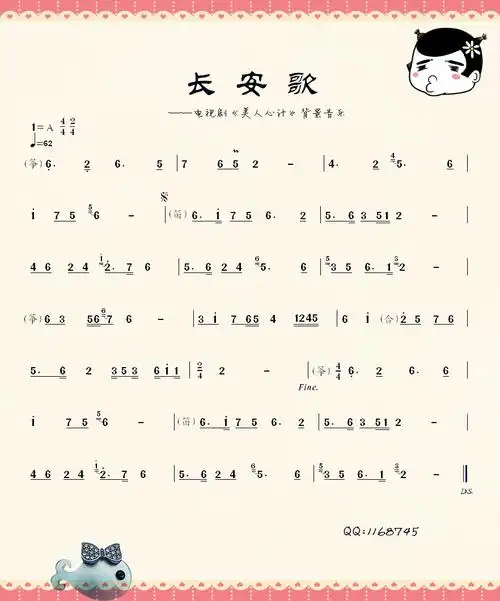 长安歌
——电视剧《美人心计》背景音乐
1=A 4/4 2/4
♩=62
(筝) 6. 2 6. 5 | 7 6 5 2 – | 4. 2 5 6 |
i 7 5 6 – | (笛) 6. i 7 5 6. 2 | 5. 6 3 51 2 – |
4 6 2 4 2. 7 6 | 5. 6 2 4 5. 6 | 3 5 6. 1 2 – |
(筝) 6 3 56 7 6 – | 3 i 7 65 4 1245 | 6 i (合) 2 5 7 6 |
5. 6 2 353 6i1 | 2/4 2 – | (筝) 4/4 6. 2 6. 6 |
Fine.
i 7 5 6 – | (笛) 6. i 7 5 6. 2 | 5. 6 3 51 2 – |
4 6 2 4 2. 7 6 | 5. 6 2 4 5. 6 | 3 5 6. 1 2 – ‖
D.S.
QQ:1168745